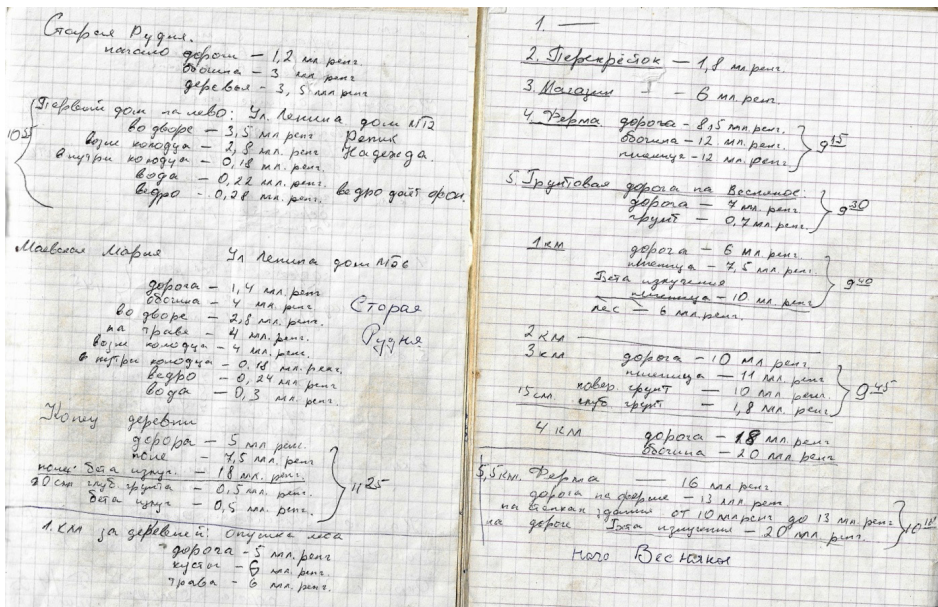 Старая Рудня.
начало дороги – 1,2 мл. ренг.
обочина – 3 мл. ренг
деревья – 3,5 мл. ренг
Первый дом налево: Ул. Ленина дом №12
во дворе – 3,5 мл. ренг Репик
возле колодца – 2,8 мл. ренг. Надежда.
внутри колодца – 0,18 мл. ренг.
вода – 0,22 мл. ренг.
ведро – 0,28 мл. ренг. ведро даёт фон.
Маевская Мария Ул Ленина дом №56
дорога – 1,4 мл. ренг
обочина – 4 мл. ренг
во дворе – 2,8 мл. ренг.
на траве – 4 мл. ренг.
возле колодца – 4 мл. ренг.
в нутри колодца – 0,18 мл. ренг.
ведро – 0,24 мл. ренг
вода – 0,3 мл. ренг.
Старая
Рудня
Конец деревни
дорога – 5 мл. ренг.
поле – 7,5 мл. ренг
бета излуч. – 18 мл. ренг.
20 см глуб. грунта – 0,5 мл. ренг.
бета излуч – 0,5 мл. ренг.
11 25
1. км за деревней: опушка леса
дорога – 5 мл. ренг
кусты – 6 мл. ренг
трава – 6 мл. ренг.
1. —
2. Перекрёсток – 1,8 мл. ренг.
3. Магазин – 6 мл. ренг.
4. Ферма дорога – 8,5 мл. ренг.
обочина – 12 мл. ренг.
пшеница – 12 мл. ренг.
9 15
5. Грунтовая дорога на Весняное:
дорога – 7 мл. ренг
грунт – 0,7 мл. ренг.
9 30
1 км дорога – 6 мл. ренг
пшеница – 7,5 мл. ренг
Бета излучения
пшеница – 10 мл. ренг.
лес – 6 мл. ренг.
9 40
2 км
3 км дорога – 10 мл. ренг
пшеница – 11 мл. ренг.
повер. грунт – 10 мл. ренг.
15 см глуб грунт – 1,8 мл. ренг.
9 45
4 км дорога – 18 мл. ренг
обочина – 20 мл. ренг
5,5 км. Ферма – 16 мл. ренг
дорога на ферме – 13 мл. ренг
на стенах здания от 10 мл. ренг до 13 мл. ренг
на дороге Бета излучения – 20 мл. ренг.
Весняное